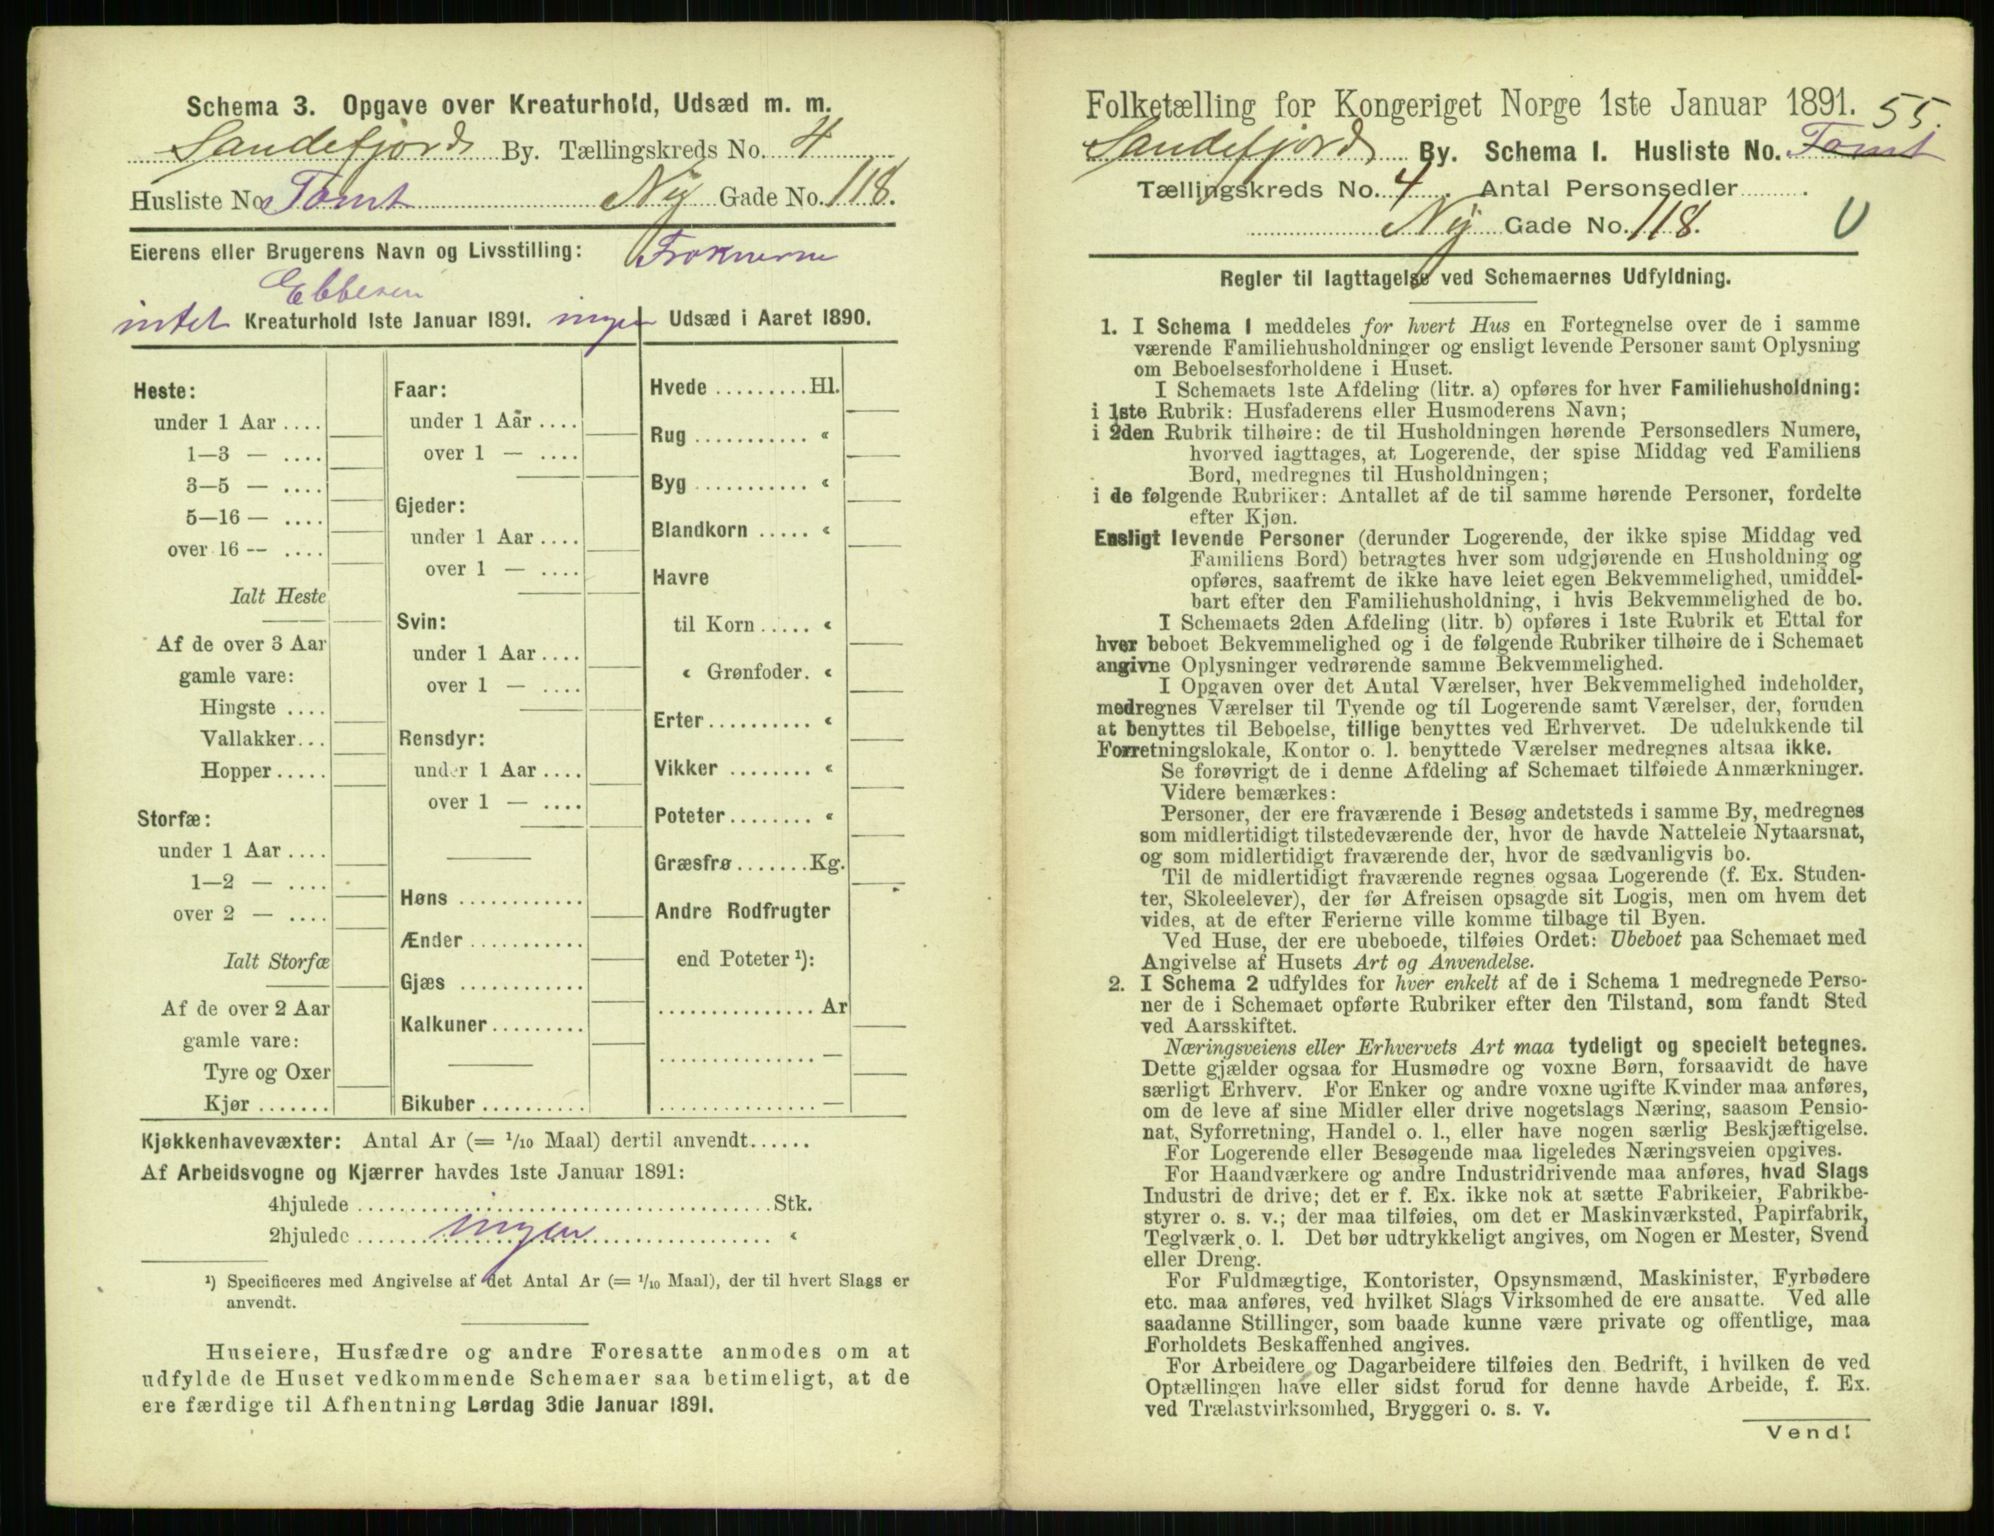 Schema 3. Opgave over Kreaturhold, Udsæd m. m.
Sandefjords By. Tællingskreds No. 4
Husliste No. Tomt Ny Gade No. 118.
Eierens eller Brugerens Navn og Livsstilling: Frøknerne
Ebbesen
intet Kreaturhold 1ste Januar 1891. ingen Udsæd i Aaret 1890.
Heste:
under 1 Aar ....
1—3 — ....
3—5 — ....
5—16 — ....
over 16 -- ....
Ialt Heste
Af de over 3 Aar
gamle vare:
Hingste ....
Vallakker...
Hopper.....
Storfæ:
under 1 Aar ....
1—2 — ....
over 2 — ....
Ialt Storfæ
Af de over 2 Aar
gamle vare:
Tyre og Oxer
Kjør .......
Faar:
under 1 Aar ....
over 1 — ....
Gjeder:
under 1 Aar ....
over 1 — ....
Svin:
under 1 Aar ....
over 1 — ....
Rensdyr:
under 1 Aar ....
over 1 — ....
Høns ............
Ænder ...........
Gjæs ............
Kalkuner.........
Bikuber ..........
Hvede .........Hl.
Rug ........... «
Byg ........... «
Blandkorn ..... «
Havre
til Korn ..... «
« Grønfoder. «
Erter .......... «
Vikker ........ «
Poteter ........ «
Græsfrø .......Kg.
Andre Rodfrugter
end Poteter ¹):
............... Ar
............... —
............... —
Kjøkkenhavevæxter: Antal Ar (= 1/10 Maal) dertil anvendt......
Af Arbeidsvogne og Kjærrer havdes 1ste Januar 1891:
4hjulede ........................................Stk.
2hjulede ........ ingen ........ «
¹) Specificeres med Angivelse af det Antal Ar (= 1/10 Maal), der til hvert Slags er
anvendt.
Huseiere, Husfædre og andre Foresatte anmodes om at
udfylde de Huset vedkommende Schemaer saa betimeligt, at de
ere færdige til Afhentning Lørdag 3die Januar 1891.
Folketælling for Kongeriget Norge 1ste Januar 1891. 55.
Sandefjords By. Schema I. Husliste No. Tomt
Tællingskreds No. 4. Antal Personsedler ........ .
Ny Gade No. 118. U
Regler til Iagttagelse ved Schemaernes Udfyldning.
1. I Schema 1 meddeles for hvert Hus en Fortegnelse over de i samme
værende Familiehusholdninger og ensligt levende Personer samt Oplysning
om Beboelsesforholdene i Huset.
I Schemaets 1ste Afdeling (litr. a) opføres for hver Familiehusholdning:
i 1ste Rubrik: Husfaderens eller Husmoderens Navn;
i 2den Rubrik tilhøire: de til Husholdningen hørende Personsedlers Numere,
hvorved iagttages, at Logerende, der spise Middag ved Familiens
Bord, medregnes til Husholdningen;
i de følgende Rubriker: Antallet af de til samme hørende Personer, fordelte
efter Kjøn.
Ensligt levende Personer (derunder Logerende, der ikke spise Middag ved
Familiens Bord) betragtes hver som udgjørende en Husholdning og
opføres, saafremt de ikke have leiet egen Bekvemmelighed, umiddel-
bart efter den Familiehusholdning, i hvis Bekvemmelighed de bo.
I Schemaets 2den Afdeling (litr. b) opføres i 1ste Rubrik et Ettal for
hver beboet Bekvemmelighed og i de følgende Rubriker tilhøire de i Schemaet
angivne Oplysninger vedrørende samme Bekvemmelighed.
I Opgaven over det Antal Værelser, hver Bekvemmelighed indeholder,
medregnes Værelser til Tyende og til Logerende samt Værelser, der, foruden
at benyttes til Beboelse, tillige benyttes ved Erhvervet. De udelukkende til
Forretningslokale, Kontor o. l. benyttede Værelser medregnes altsaa ikke.
Se forøvrigt de i denne Afdeling af Schemaet tilføiede Anmærkninger.
Videre bemærkes:
Personer, der ere fraværende i Besøg andetsteds i samme By, medregnes
som midlertidigt tilstedeværende der, hvor de havde Natteleie Nytaarsnat,
og som midlertidigt fraværende der, hvor de sædvanligvis bo.
Til de midlertidigt fraværende regnes ogsaa Logerende (f. Ex. Studen-
ter, Skoleelever), der før Afreisen opsagde sit Logis, men om hvem det
vides, at de efter Ferierne ville komme tilbage til Byen.
Ved Huse, der ere ubeboede, tilføies Ordet: Ubeboet paa Schemaet med
Angivelse af Husets Art og Anvendelse.
2. I Schema 2 udfyldes for hver enkelt af de i Schema 1 medregnede Perso-
ner de i Schemaet opførte Rubriker efter den Tilstand, som fandt Sted
ved Aarsskiftet.
Næringsveiens eller Erhvervets Art maa tydeligt og specielt betegnes.
Dette gjælder ogsaa for Husmødre og voxne Børn, forsaavidt de have
særligt Erhverv. For Enker og andre voxne ugifte Kvinder maa anføres,
om de leve af sine Midler eller drive nogetslags Næring, saasom Pensio-
nat, Syforretning, Handel o. l., eller have nogen særlig Beskjæftigelse.
For Logerende eller Besøgende maa ligeledes Næringsveien opgives.
For Haandværkere og andre Industridrivende maa anføres, hvad Slags
Industri de drive; det er f. Ex. ikke nok at sætte Fabrikeier, Fabrikbe-
styrer o. s. v.; der maa tilføies, om det er Maskinværksted, Papirfabrik,
Teglværk o. l. Det bør udtrykkeligt angives, om Nogen er Mester, Svend
eller Dreng.
For Fuldmægtige, Kontorister, Opsynsmænd, Maskinister, Fyrbødere
etc. maa anføres, ved hvilket Slags Virksomhed de ere ansatte. Ved alle
saadanne Stillinger, som baade kunne være private og offentlige, maa
Forholdets Beskaffenhed angives.
For Arbeidere og Dagarbeidere tilføies den Bedrift, i hvilken de ved
Optællingen have eller sidst forud for denne havde Arbeide, f. Ex.
ved Trælastvirksomhed, Bryggeri o. s. v.
Vend!